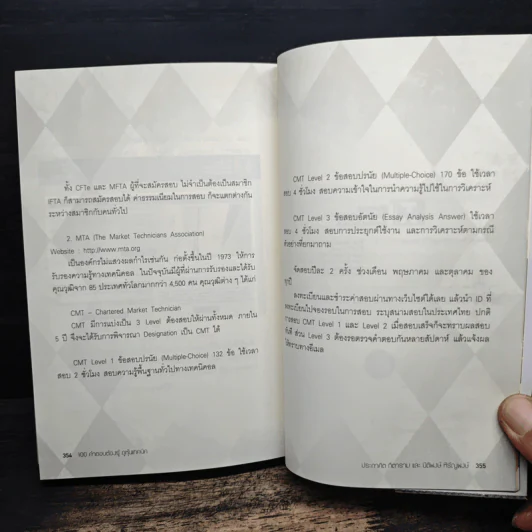 ทั้ง CFTe และ MFTA ผู้ที่จะสมัครสอบ ไม่จำเป็นต้องเป็นสมาชิก
IFTA ก็สามารถสมัครสอบได้ ค่าธรรมเนียมในการสอบ ก็จะแตกต่างกัน
ระหว่างสมาชิกกับคนทั่วไป
2. MTA (The Market Technicians Association)
Website : http://www.mta.org
เป็นองค์กรไม่แสวงผลกำไรเช่นกัน ก่อตั้งขึ้นในปี 1973 ให้การ
รับรองความรู้ทางเทคนิคอล ในปัจจุบันมีผู้ที่ผ่านการรับรองและได้รับ
คุณวุฒิจาก 85 ประเทศทั่วโลกมากกว่า 4,500 คน คุณวุฒิต่าง ๆ ได้แก่
CMT – Chartered Market Technician
CMT มีการแบ่งเป็น 3 Level ต้องสอบให้ผ่านทั้งหมด ภายใน
5 ปี จึงจะได้รับการพิจารณา Designation เป็น CMT ได้
CMT Level 1 ข้อสอบปรนัย (Multiple-Choice) 132 ข้อ ใช้เวลา
สอบ 2 ชั่วโมง สอบความรู้พื้นฐานทั่วไปทางเทคนิคอล
354 100 คำถามต้องรู้ ดูหุ้นเทคนิค
CMT Level 2 ข้อสอบปรนัย (Multiple-Choice) 170 ข้อ ใช้เวลา
อบ 4 ชั่วโมง สอบความเข้าใจในการนำความรู้ไปใช้ในการวิเคราะห์
CMT Level 3 ข้อสอบอัตนัย (Essay Analysis Answer) ใช้เวลา
อบ 4 ชั่วโมง สอบการประยุกต์ใช้งาน และการวิเคราะห์ตามกรณี
ตัวอย่างที่ยกมาถาม
จัดสอบปีละ 2 ครั้ง ช่วงเดือน พฤษภาคม และตุลาคม ของ
ทุกปี
ลงทะเบียนและชำระค่าสอบผ่านทางเว็บไซต์ได้เลย แล้วนำ ID ที่
ลงทะเบียนไปจองรอบในการสอบ ระบุสนามสอบในประเทศไทย ปกติ
การสอบ CMT Level 1 และ Level 2 เมื่อสอบเสร็จก็จะทราบผลสอบ
ทันที ส่วน Level 3 ต้องรอตรวจคำตอบกันหลายสัปดาห์ แล้วแจ้งผล
ให้ทราบทางอีเมล
355